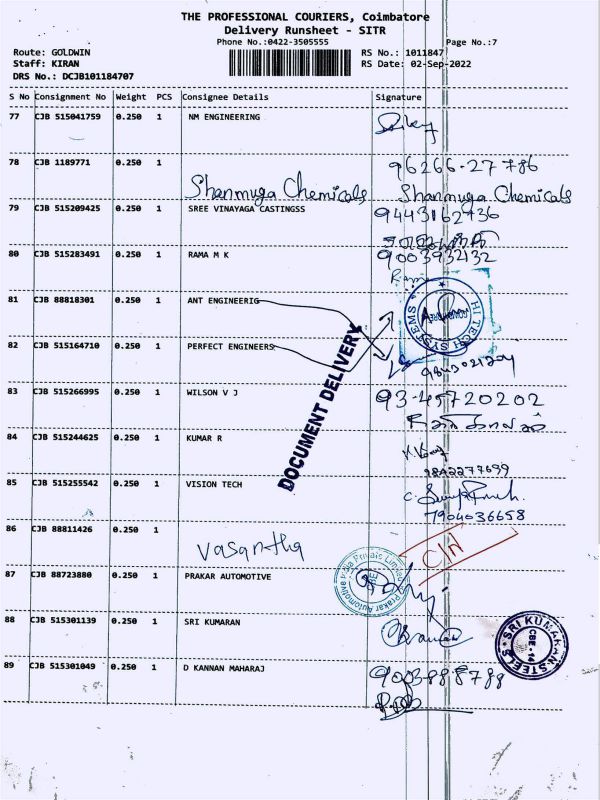 THE PROFESSIONAL COURIERS, Coimbatore
Delivery Runsheet - SITR
Phone No.:0422-3505555
Page No.:7
Route: GOLDWIN
RS No.: 1011847
Staff: KIRAN
RS Date: 02-Sep-2022
DRS No.: DCJB101184707
S No Consignment No Weight PCS Consignee Details Signature
77 CJB 515041759 0.250 1 NM ENGINEERING
78 CJB 1189771 0.250 1 96266-27786
Shanmuga Chemicals Shanmuga Chemicals
79 CJB 515209425 0.250 1 SREE VINAYAGA CASTINGSS 9443162736
80 CJB 515283491 0.250 1 RAMA M K 9003932132
Rama
81 CJB 88818301 0.250 1 ANT ENGINEERIG
HI TECH SYSTEMS
82 CJB 515164710 0.250 1 PERFECT ENGINEERS
DOCUMENT DELIVERY
83 CJB 515266995 0.250 1 WILSON V J 93-45720202
84 CJB 515244625 0.250 1 KUMAR R
9842277699
85 CJB 515255542 0.250 1 VISION TECH
7904036658
86 CJB 88811426 0.250 1
Vasantha
C/N
87 CJB 88723880 0.250 1 PRAKAR AUTOMOTIVE
Prakar Automotive India Private Limited
88 CJB 515301139 0.250 1 SRI KUMARAN
SRI KUMARAN STEELS
89 CJB 515301049 0.250 1 D KANNAN MAHARAJ 9003888788